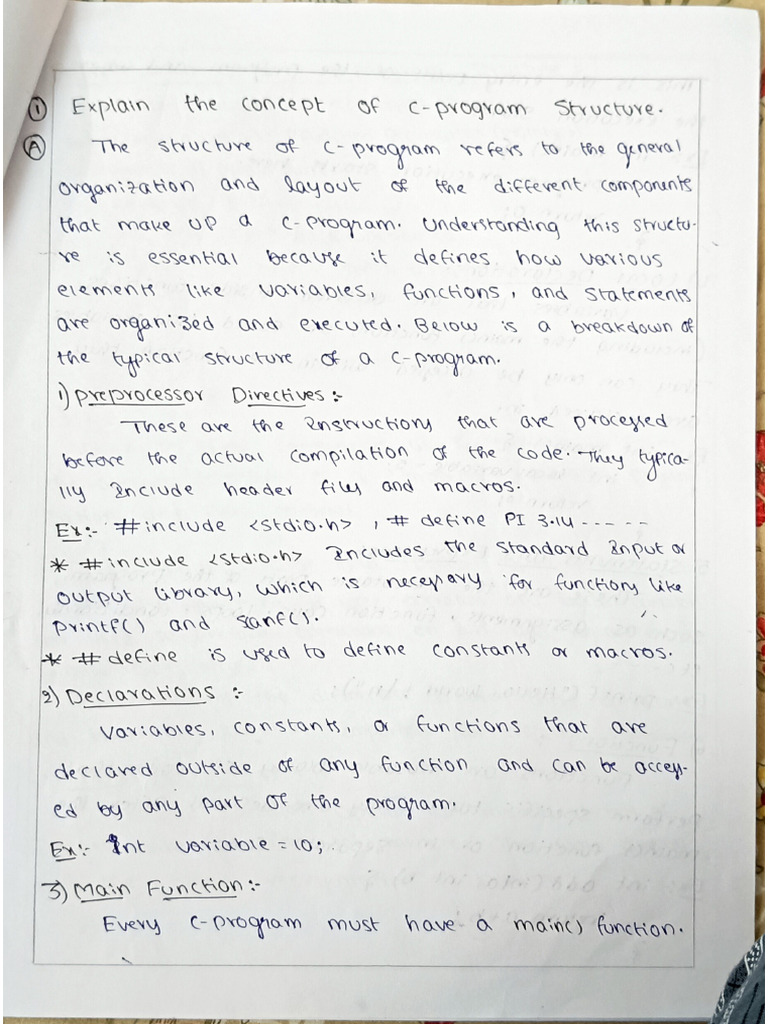 ① Explain the concept of C-program Structure.
Ⓐ The structure of C-program refers to the general
organization and layout of the different components
that make up a C-program. Understanding this structu-
re is essential because it defines how various
elements like variables, functions, and statements
are organized and executed. Below is a breakdown of
the typical structure of a C-program.
1) Preprocessor Directives :-
These are the Instructions that are processed
before the actual compilation of the code. They typica-
lly Include header files and macros.
Ex:- #include <stdio.h> , # define PI 3.14 - - - - -
* #include <stdio.h> Includes the standard Input or
output library, which is necessary for functions like
printf() and sanf().
* # define is used to define constants or macros.
2) Declarations :-
Variables, constants, or functions that are
declared outside of any function and can be access-
ed by any part of the program.
Ex:- Int variable = 10;
3) Main Function :-
Every C-program must have a main() function.